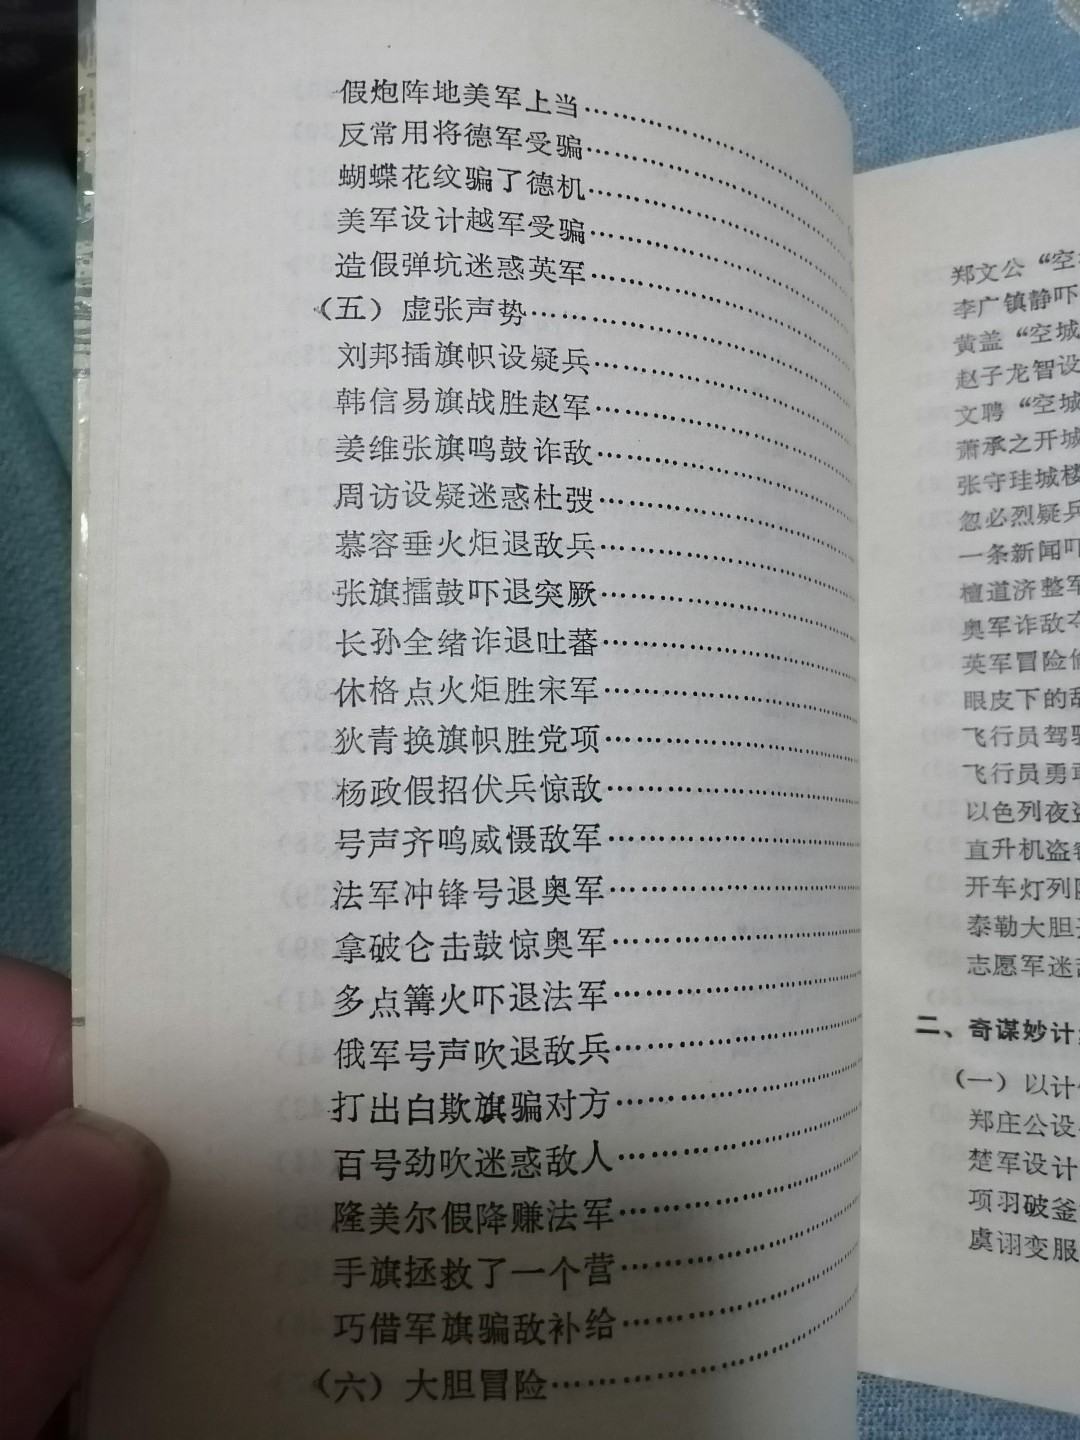 假炮阵地美军上当
反常用将德军受骗
蝴蝶花纹骗了德机
美军设计越军受骗
造假弹坑迷惑英军
（五）虚张声势
刘邦插旗帜设疑兵
韩信易旗战胜赵军
姜维张旗鸣鼓诈敌
周访设疑迷惑杜弢
慕容垂火炬退敌兵
张旗擂鼓吓退突厥
长孙全绪诈退吐蕃
休格点火炬胜宋军
狄青换旗帜胜党项
杨政假招伏兵惊敌
号声齐鸣威慑敌军
法军冲锋号退奥军
拿破仑击鼓惊奥军
多点篝火吓退法军
俄军号声吹退敌兵
打出白欺旗骗对方
百号劲吹迷惑敌人
隆美尔假降赚法军
手旗拯救了一个营
巧借军旗骗敌补给
（六）大胆冒险
郑文公“空
李广镇静吓
黄盖“空城
赵子龙智设
文聘“空城
萧承之开城
张守珪城楼
忽必烈疑兵
一条新闻吓
檀道济整军
奥军诈敌夺
英军冒险偷
眼皮下的敌
飞行员驾驶
飞行员勇敢
以色列夜盗
直升机盗
开车灯列
泰勒大胆
志愿军迷敌
二、奇谋妙计
（一）以计
郑庄公设
楚军设计
项羽破釜
虞诩变服